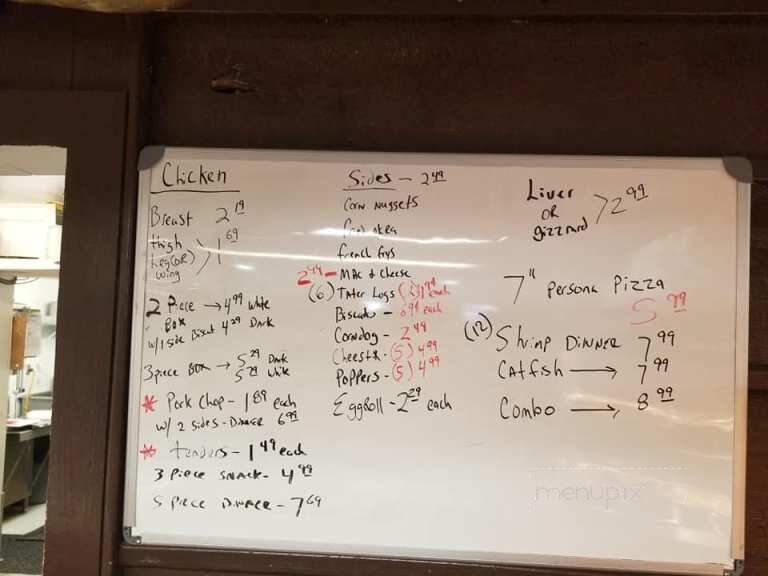 Chicken
Breast 2 19
thigh
Leg(OR) > 1 69
wing
2 Piece → 4 99 white
Box
w/1 side Biscuit 4 29 Dark
3 piece Box → 5 29 Dark
5 79 white
* Pork Chop - 1 89 each
w/ 2 sides - Dinner 6 99
* tenders - 1 49 each
3 Piece snack - 4 99
5 Piece Dinner - 7 69
Sides - 2 49
Corn Nuggets
okra
french frys
2 49 - Mac & cheese
(6) Tater Logs each
Biscuits - 69 each
Corndog - 2 49
Cheesstx - (5) 4 99
Poppers - (5) 4 99
Eggroll - 2 29 each
Liver
OR > 2 99
gizzard
7" Persona Pizza
5 99
(12) Shrimp Dinner 7 99
Catfish → 7 99
Combo → 8 99
menupix